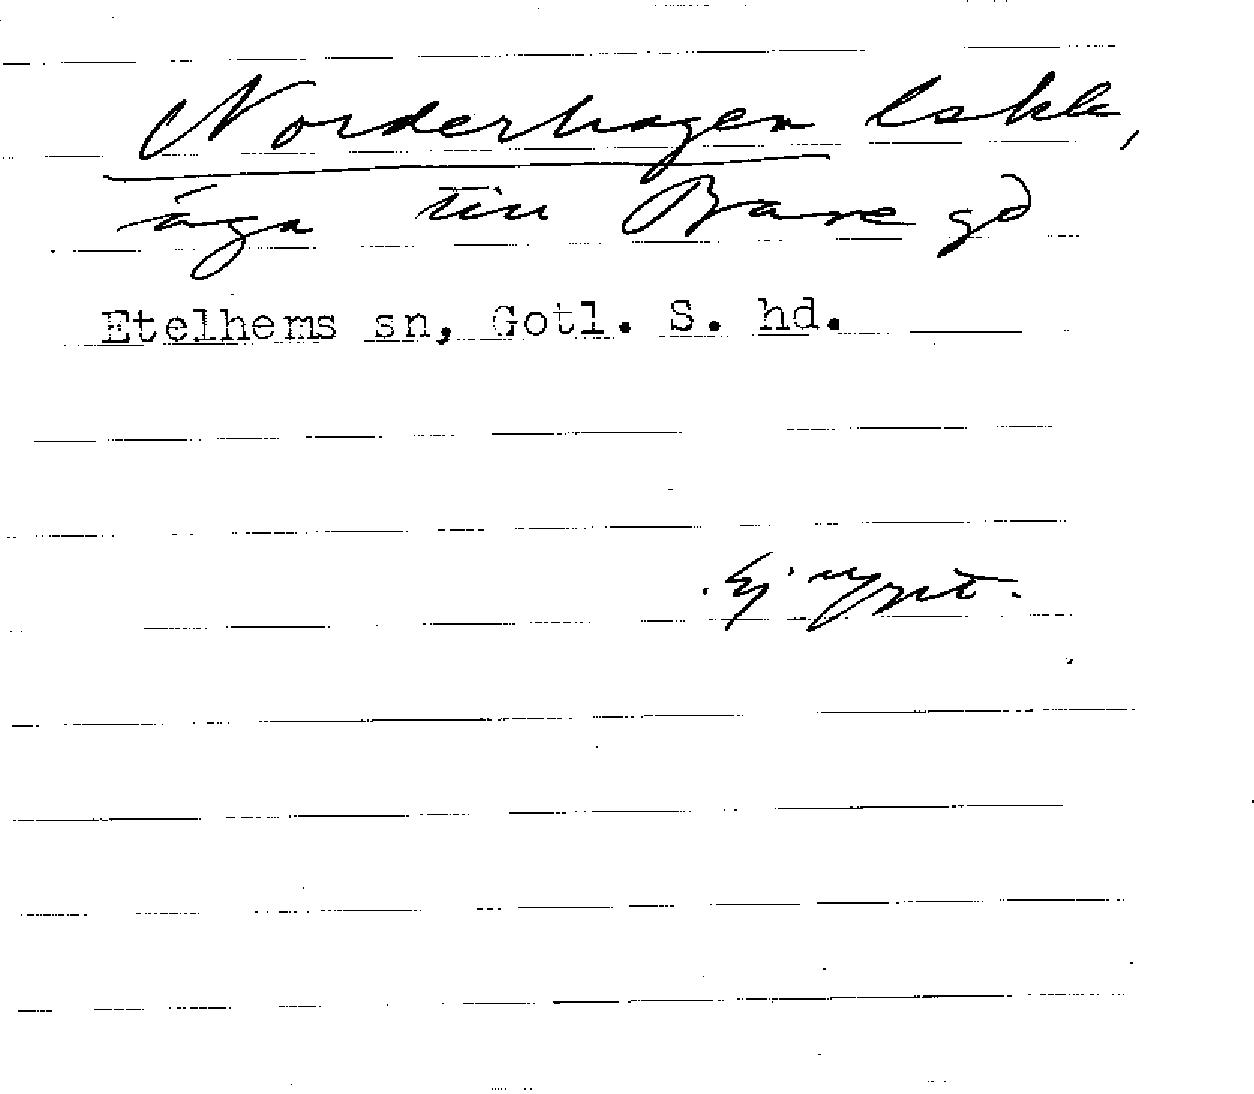 Norderhagen lokk,
äga till Bare gd
Etelhems sn, Gotl. S. hd.
Ej nypt.